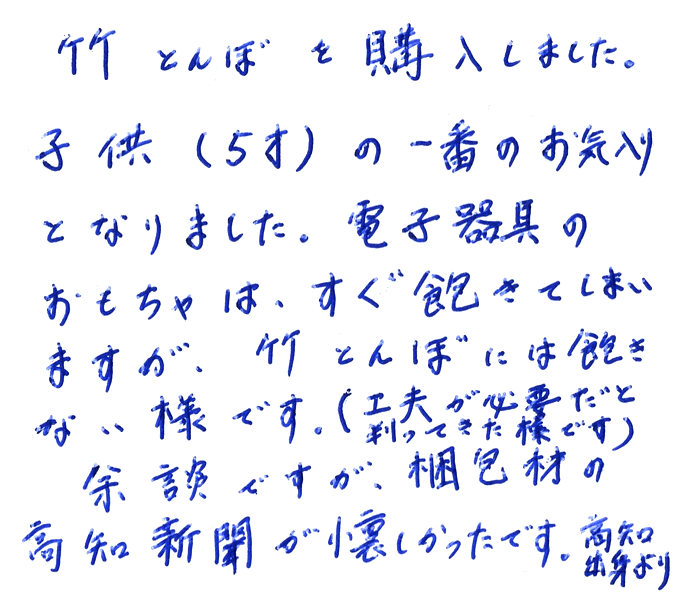 竹とんぼを購入しました。
子供(5才)の一番のお気入り
となりました。電子器具の
おもちゃは、すぐ飽きてしまい
ますが、竹とんぼには飽き
ない様です。(工夫が必要だと
判ってきた様です)
余談ですが、梱包材の
高知新聞が懐しかったです。高知
出身より